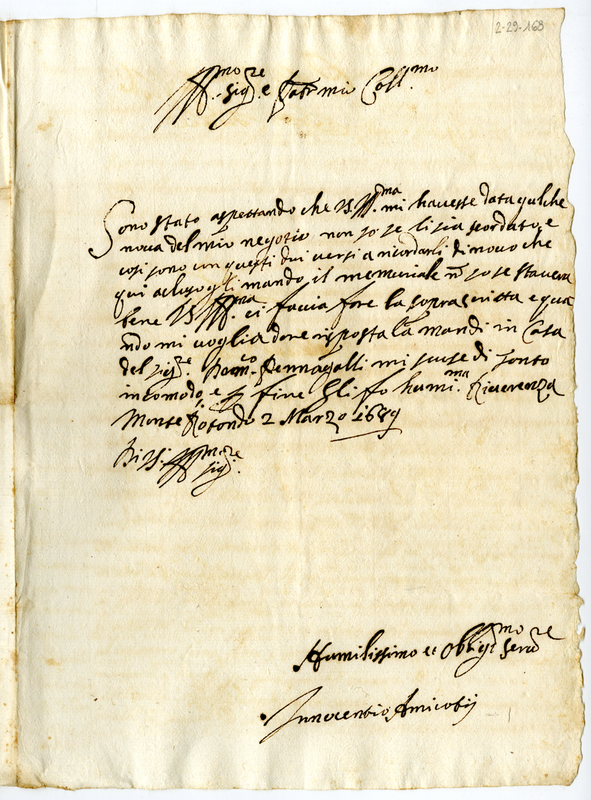 2-29-168
Ill.mo Sig.re e Pat.n mio Coll.mo
Sono stato aspettando che V.S. Ill.ma mi havesse data qulche
nova del mio negotio non so se li sia scordato, e
così sono con questi dui versi a ricordarli di novo che
qui acluso gli mando il memoriale n so se stavera
bene V.S. Ill.ma ci facia fare la soprascritta e qua
ndo mi voglia dare risposta la mandi in Casa
del sig.re Pennagalli mi scuse di tanto
incomodo, e p fine gli fo humi.ma Riverenza
Monte Rotondo 2 Marzo 1689
Di V.S. Ill.mo Sig.re
Humilissimo et Oblig.mo Serv.re
Innocentio Amicotij